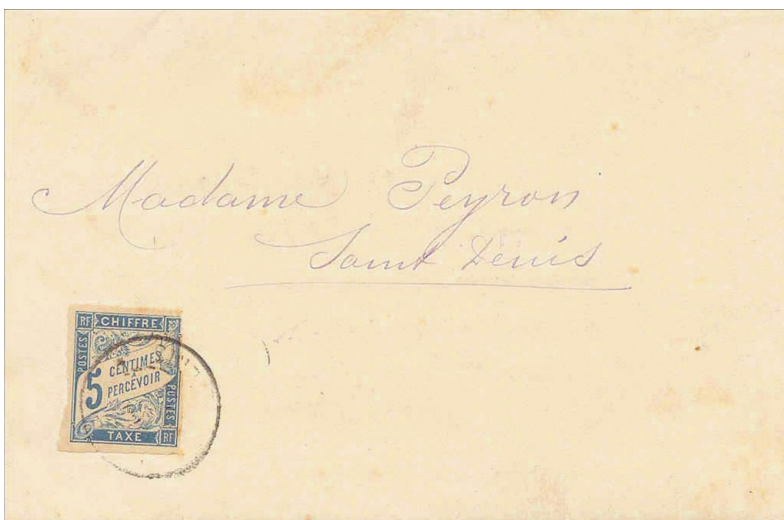 Madame Peyron
Saint Denis
RF CHIFFRE
POSTES
5 CENTIMES
A
PERCEVOIR
POSTES
TAXE RF